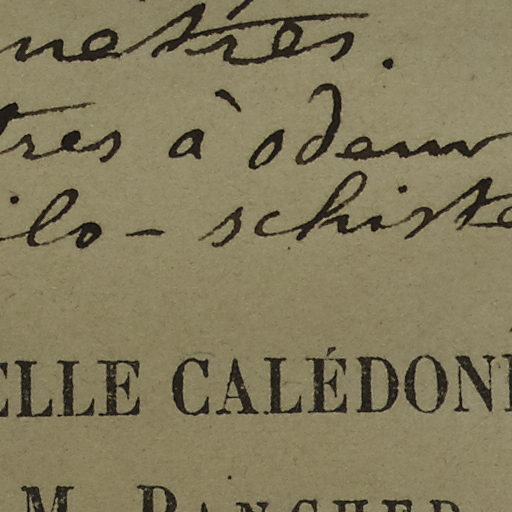 metres.
tres à odeur
ilo - schiste
ELLE CALÉDONI
M. PANCHER